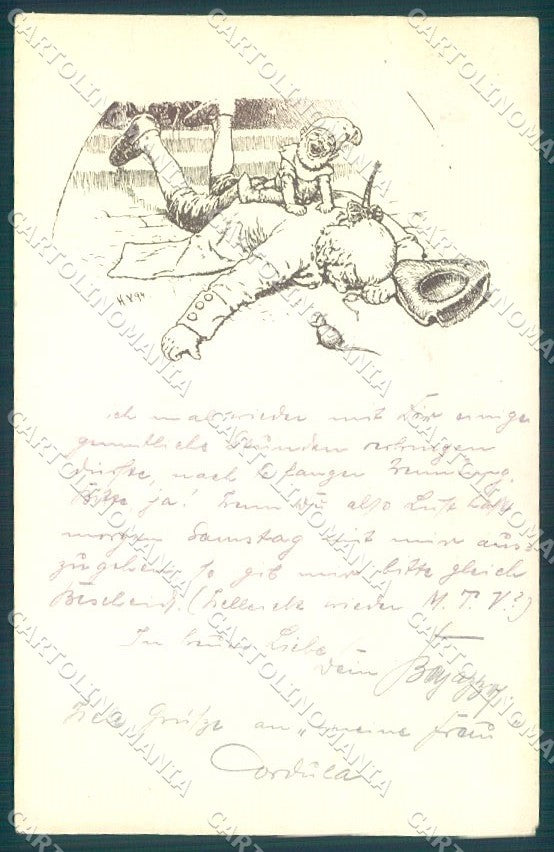 H V 94
ich mal wieder mit Dir einige
gemütliche Stunden verbringen
dürfte, nach so langer Trennung.
Bitte ja! Wenn Du also Lust hast
morgen Samstag mit mir aus-
zugehen so gib mir bitte gleich
Bescheid. (Vielleicht wieder M. T. V?)
In treuer Liebe
Dein Bajazzo.
Viele Grüsse an "meine Frau
Cordula
CARTOLINOMANIA